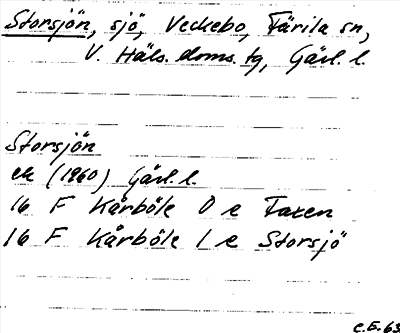 Storsjön, sjö, Veckebo, Färila sn,
V. Häls. doms. tg, Gävl. l.
Storsjön
ek (1960) Gävl. l.
16 F Kårböle 0 e Faxen
16 F Kårböle 1 e Storsjö
C.E. 63